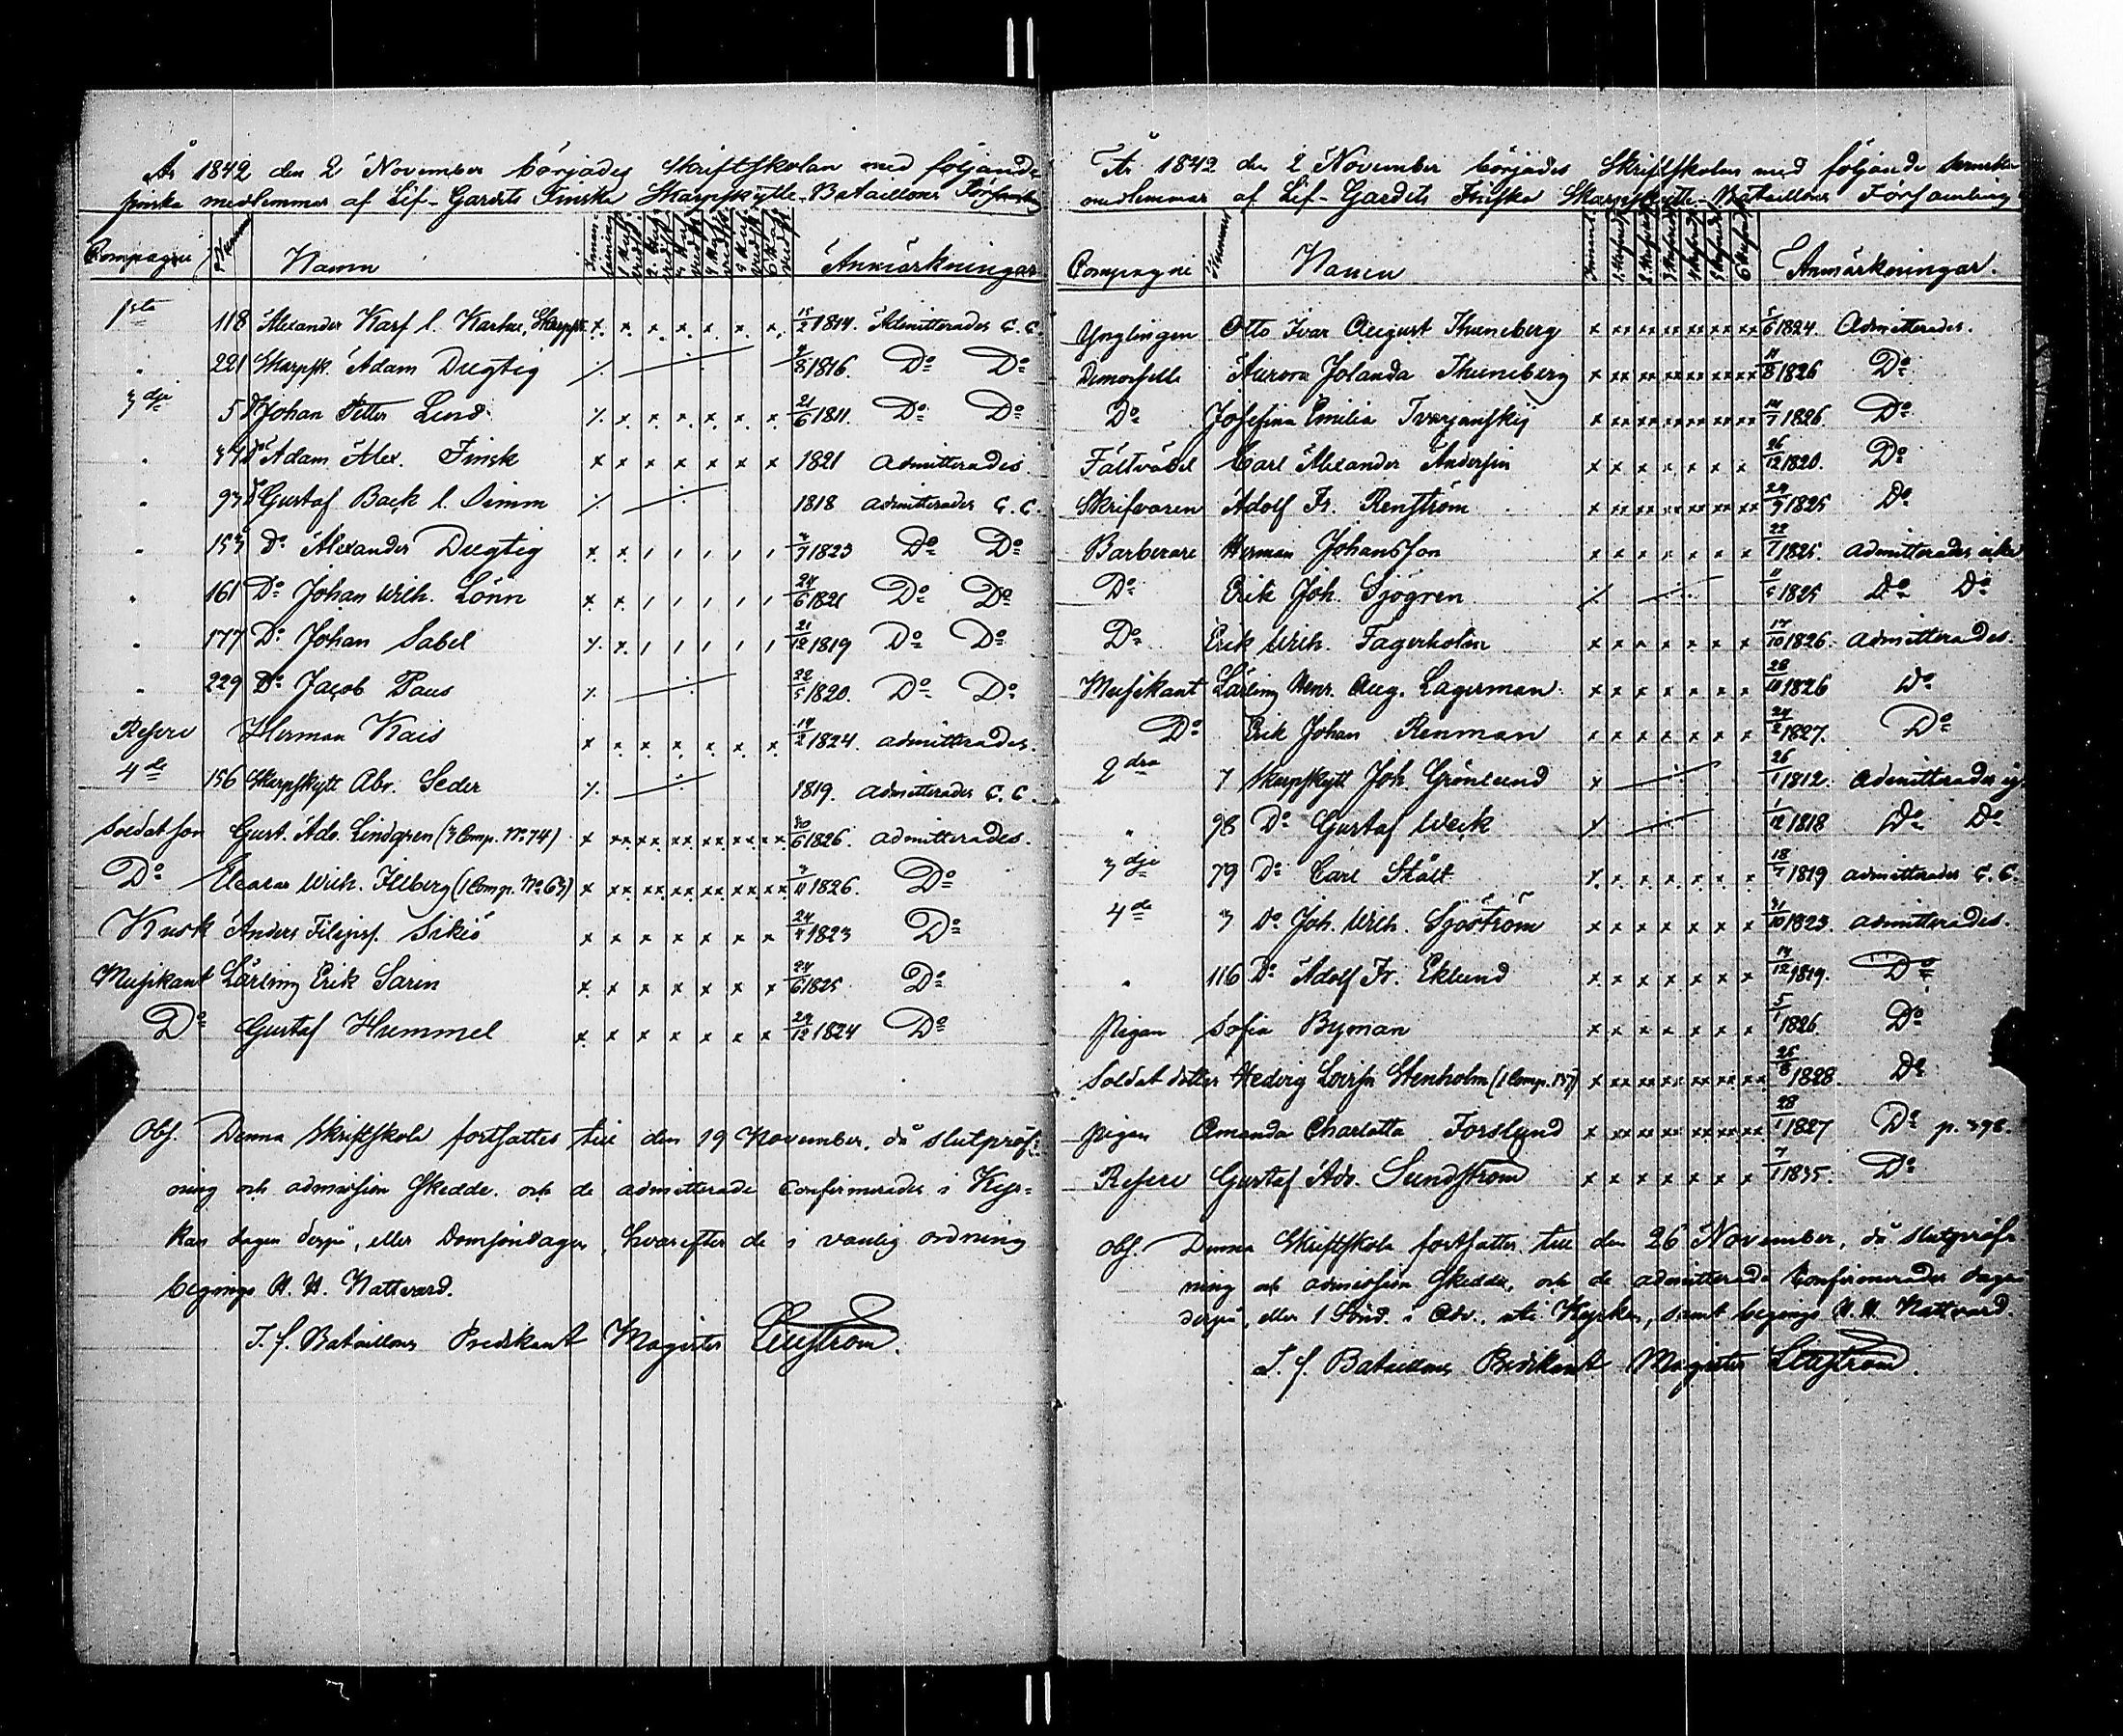 År 1842 den 2 November börjades Skriftskolan med följande
finska medlemmar af Lif-Gardets Finska Skarpskytte-Bataillons Församling
Compagnie Nummer Namn Anmärkningar
1sta 118 Alexander Karf l. Skarpsk. x x x x x x x 15/2 1814. Admitterades C. C.
" 221 Skarpsk. Adam Dugtig 1816. Do Do
3dje 5 Do Johan Petter Lind x x x x x x 21/6 1811. Do Do
" 37 Do Adam Alex. Finsk x x x x x x x 1821 admitterades.
" 93 Do Gustaf Back l. Simm 1818 admitterades C. C.
" 153 Do Alexander Dugtig x x 1823 Do Do
" 161 Do Johan Wilh. Lönn x x 24/6 1821 Do Do
" 177 Do Johan Sabel 21/12 1819 Do Do
" 229 Do Jacob Paus 22/5 1820. Do Do
Refere Herman Kais x x x x x x x 14/2 1824. admitterades.
4de 156 Skarpskytt Abr. Seder 1819. admitterades C. C.
Soldat son Gust. Ado. Lindgren (3 Comp. No 74) x xx xx xx xx xx xx 30/6 1826. admitterades.
Do Eleasar Wilh. Illberg (1 Comp. No 63) x xx xx xx xx xx xx 1826. Do
Kusk Anders Filipsf. Sikiö x x x x x x x 1823 Do
Musikant Lärling Erik Sarin x x x x x x x 24/6 1825 Do
Do Gustaf Hummel x x x x x x x 29/12 1824 Do
Obs. Denna Skriftskola fortsattes till den 19 November, då slutpröf=
ning och admission skedde, och de admitterade Confirmerades i Kyr=
kan dagen derpå, eller Domsöndagen, hvarefter de i vanlig ordning
begingo H. H. Nattvard.
T. f. Bataillons Predikant Magister
År 1842 den 2 November börjades Skriftskolan med följande svenska
medlemmar af Lif-Gardets Finska Skarpskytte-Bataillons Församling
Compagnie Nummer Namn Anmärkningar.
Ynglingen Otto Ivar August Thuneberg x xx xx xx xx xx xx 1824. Admitterades.
Demoiselle Aurora Jolanda Thuneberg x xx xx xx xx xx xx 11/8 1826 Do
Do Josefina Emilia Tvarjanskij x xx xx xx xx xx xx 14/7 1826. Do
Fältväbel Carl Alexander Andersin x x x x x x x 26/12 1820. Do
Skrifvaren Adolf Fr. Renström x xx xx xx xx xx xx 29/9 1825 Do
Barberare Herman Johansson x x x x x x x 22/7 1825. admitterades icke
Do Erik Joh. Sjögren 1825 Do Do
Do Erik Wilh. Fagerholm x x x x x x x 17/10 1826. admitterades.
Musikant Lärling Henr. Aug. Lagerman x x x x x x x 28/10 1826 Do
Do Erik Johan Renman x x x x x x x 24/2 1827. Do
2dra 7 Skarpskytt Joh. Grönlund x 26/1 1812. admitterades ej
" 98 Do Gustaf Weik 1/12 1818 Do Do
3dje 79 Do Carl Stålt x x x x x x 18/7 1819 admitterades C. C.
4de 3 Do Joh. Wilh. Sjöström x x x x x x x 31/10 1823. admitterades.
" 116 Do Adolf Fr. Eklund x x x x x x x 14/12 1819. Do
Pigan Sofia Byman x x x x x x x 5/1 1826. Do
Soldat dotter Hedvig Lovisa Stenholm (1 Comp. 157) x xx xx xx xx xx xx 1828. Do
Pigan Amanda Charlotta Forslund x xx xx xx xx xx xx 28/1 1827 Do p. 398.
Refere Gustaf Ado. Sundström x x x x x x x 1835. Do
Obs. Denna Skriftskola fortsattes till den 26 November, då slutpröf=
ning och admission skedde, och de admitterade Confirmerades dagen
derpå, eller 1 Sönd. i Adv., uti Kyrkan, samt begingo H. H. Nattvard.
T. f. Bataillons Predikant Magister